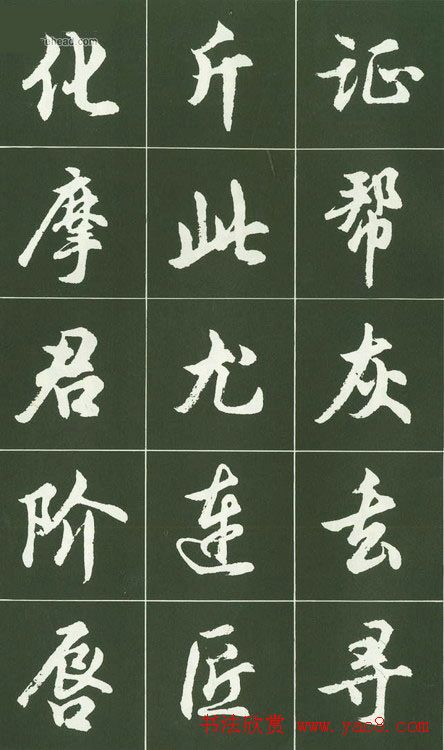 证帮灰去寻
斤此尤连匠
化摩君阶唇
书法欣赏 www.yac8.com